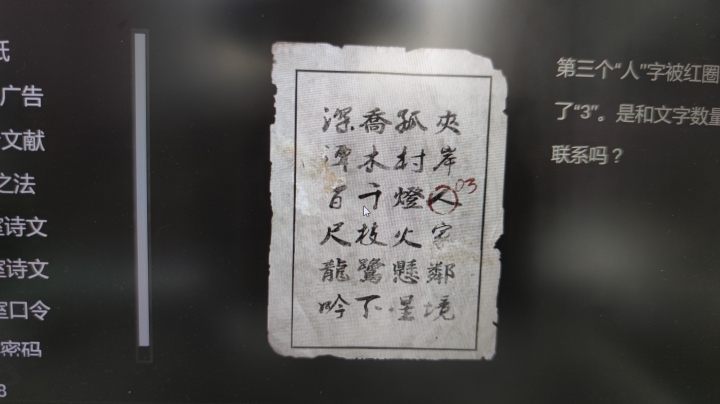 氏
广告
文献
之法
室诗文
室诗文
室口令
密码
8
夾岸人家鄰境
03
孤村燈火懸星
喬木千枝鷺下
深潭百尺龍吟
第三个“人”字被红圈
了“3”。是和文字数量
联系吗？